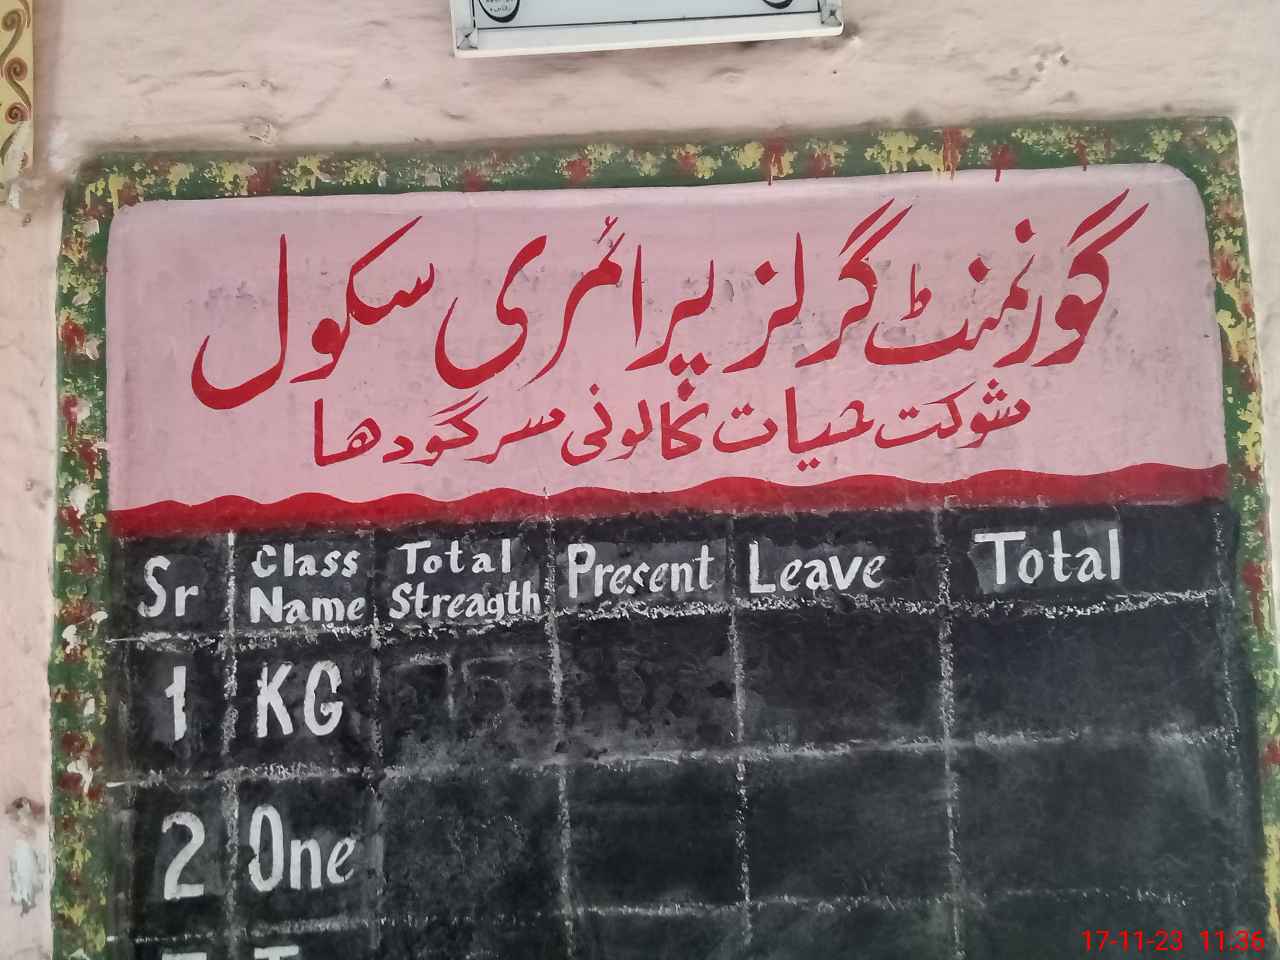 گورنمنٹ گرلز پرائمری سکول
شوکت حیات کالونی سرگودھا
Sr Class Name Total Streagth Present Leave Total
1 KG
2 One
17-11-23 11:36